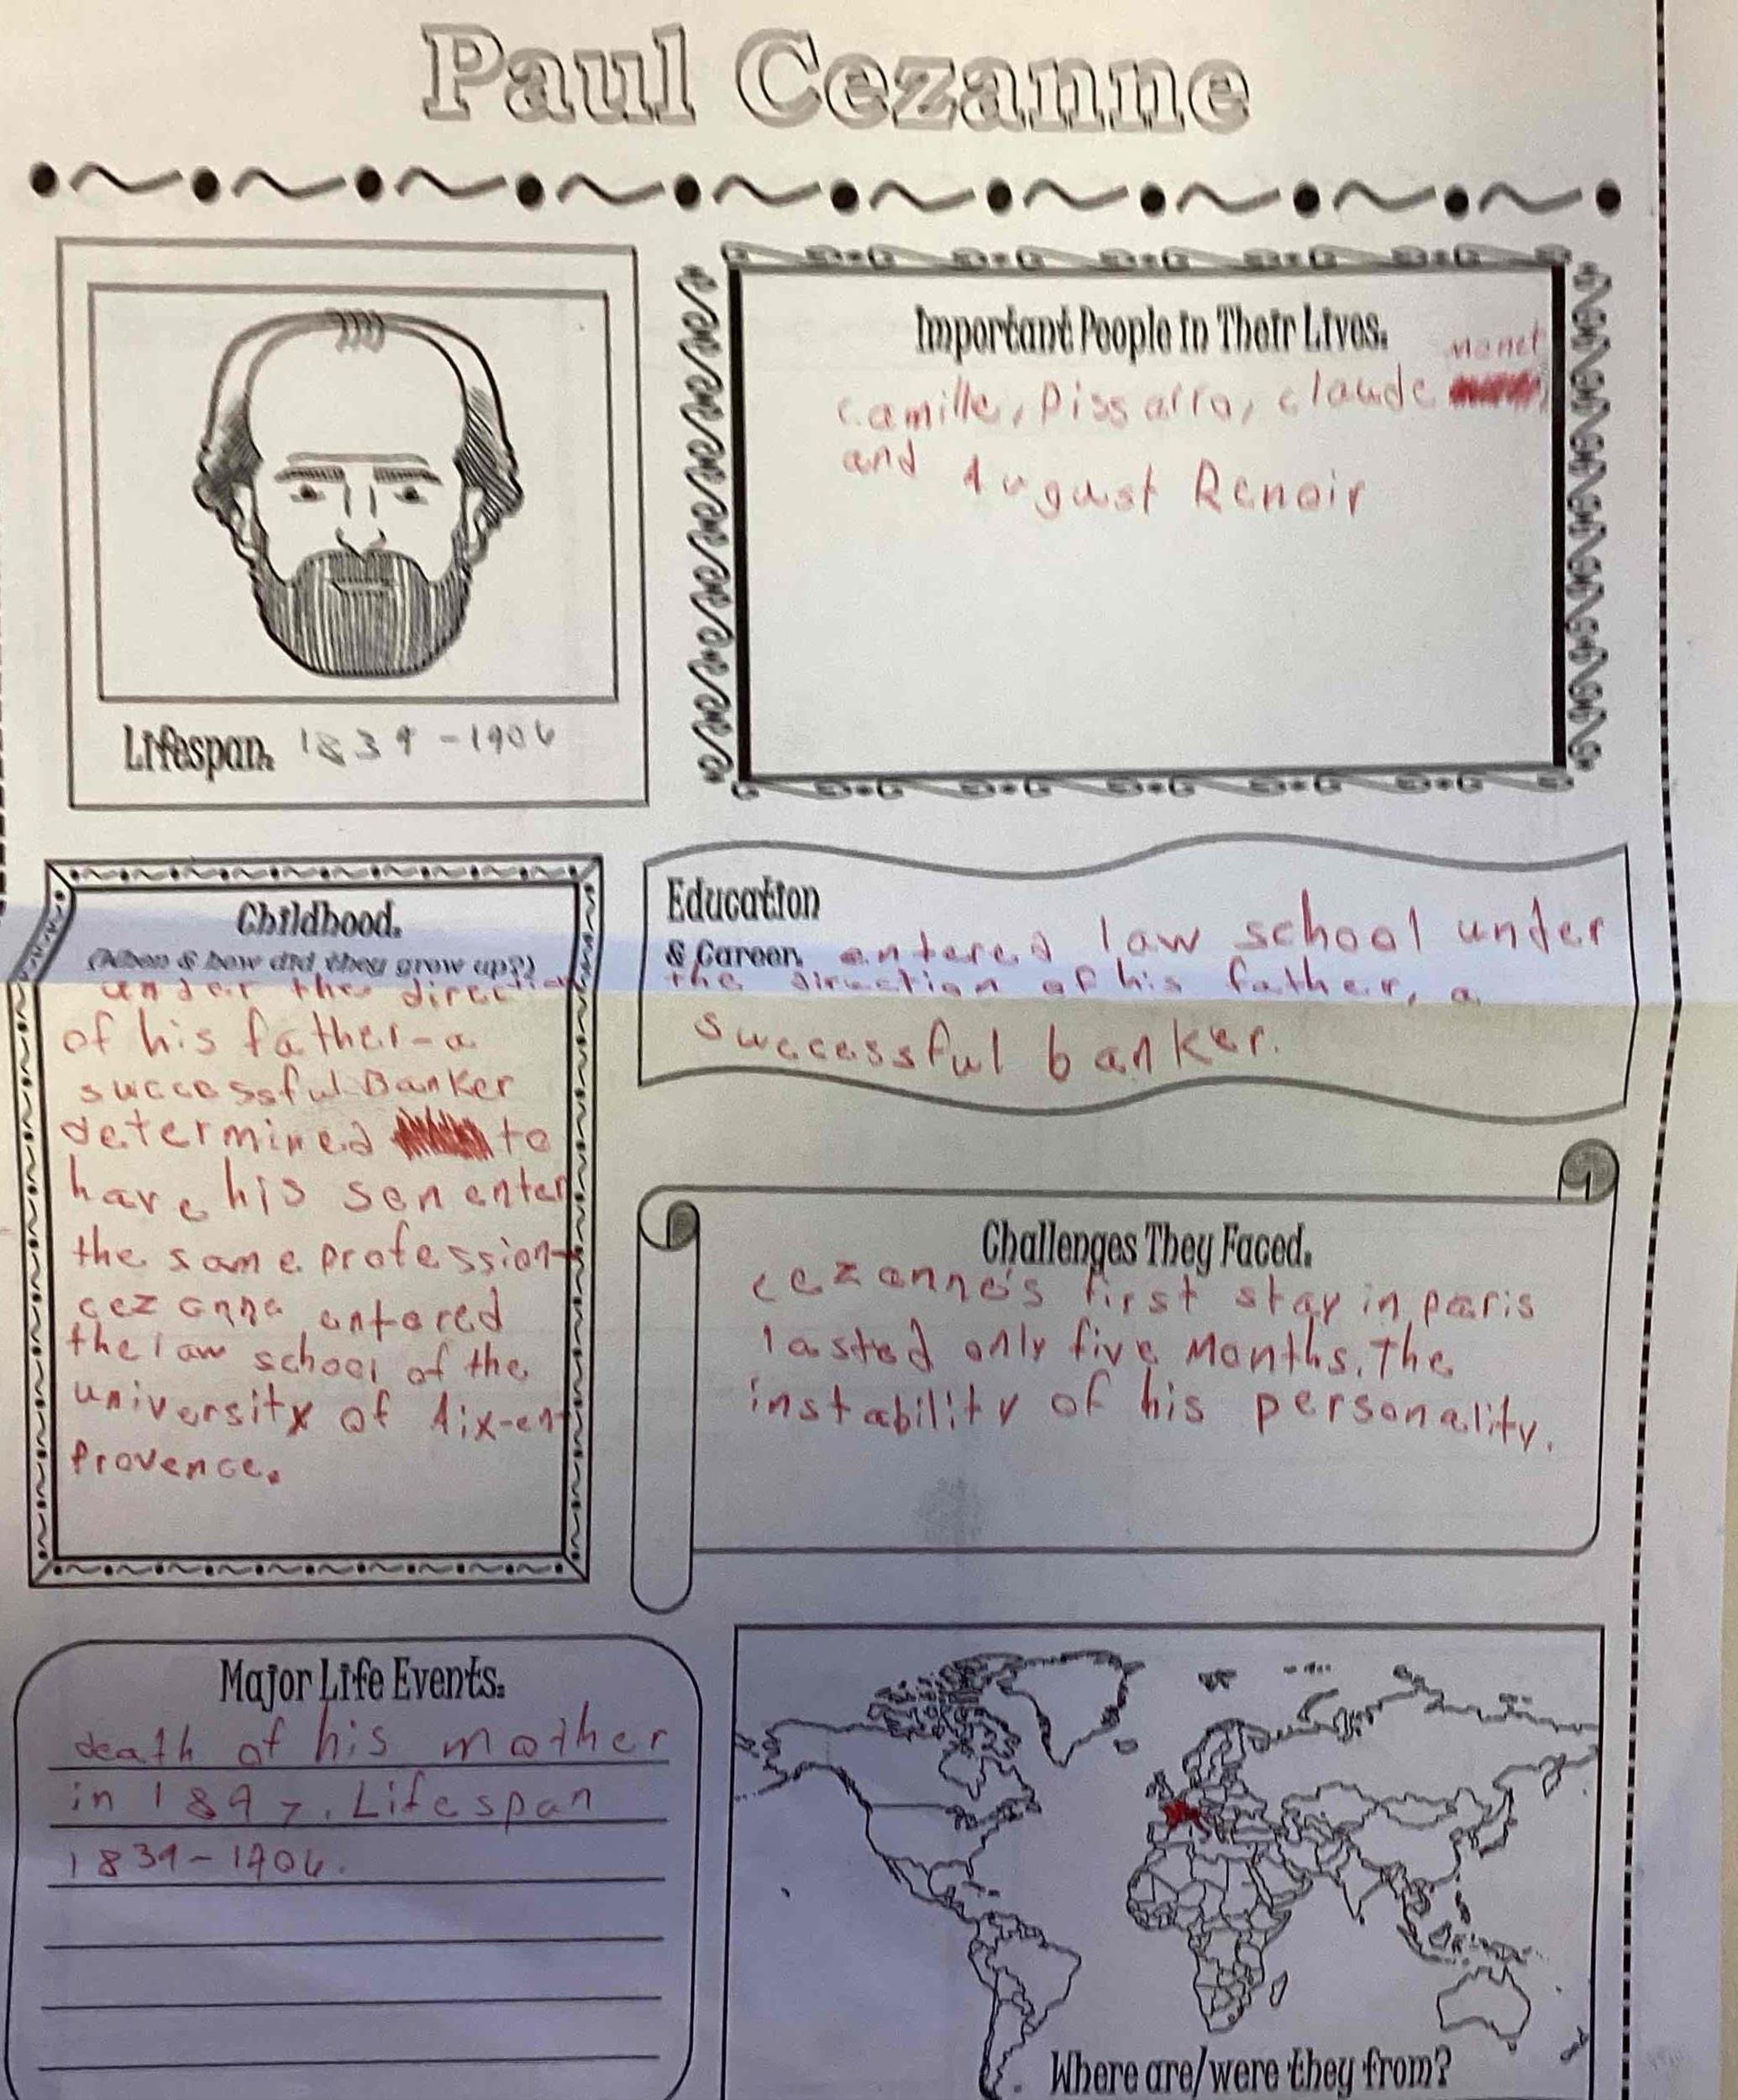 Paul Cezanne
Lifespan. 1839-1906
Important People in Their Lives.
monet
camille, pissarro, claude
and August Renoir
Childhood.
(When & how did they grow up?)
under the direction
of his father-a
successful Banker
determined to
have his son enter
the same profession-
cezanne entered
the law school of the
university of Aix-en-
provence.
Education
& Career. entered law school under
the direction of his father, a
successful banker.
Challenges They Faced.
cezanne's first stay in paris
lasted only five months. The
instability of his personality.
Major Life Events.
death of his mother
in 1897. Lifespan
1839-1906.
Where are/were they from?